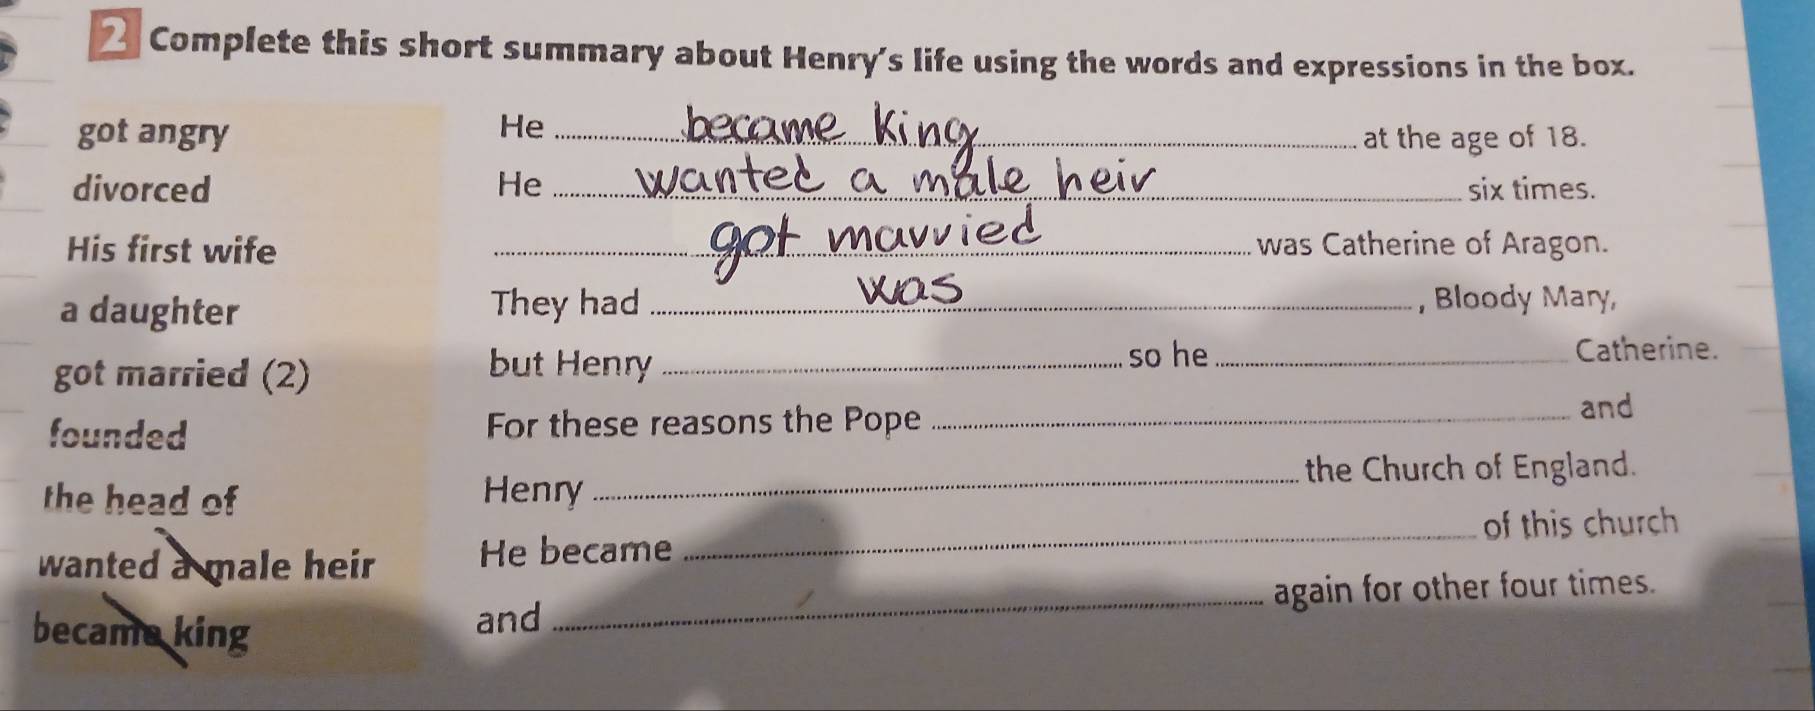 2 Complete this short summary about Henry's life using the words and expressions in the box.
got angry
divorced
His first wife
a daughter
got married (2)
founded
the head of
wanted a male heir
became king
He became King at the age of 18.
He wanted a male heir six times.
got married was Catherine of Aragon.
They had was, Bloody Mary,
but Henry so he Catherine.
For these reasons the Pope and
Henry the Church of England.
He became of this church
and again for other four times.